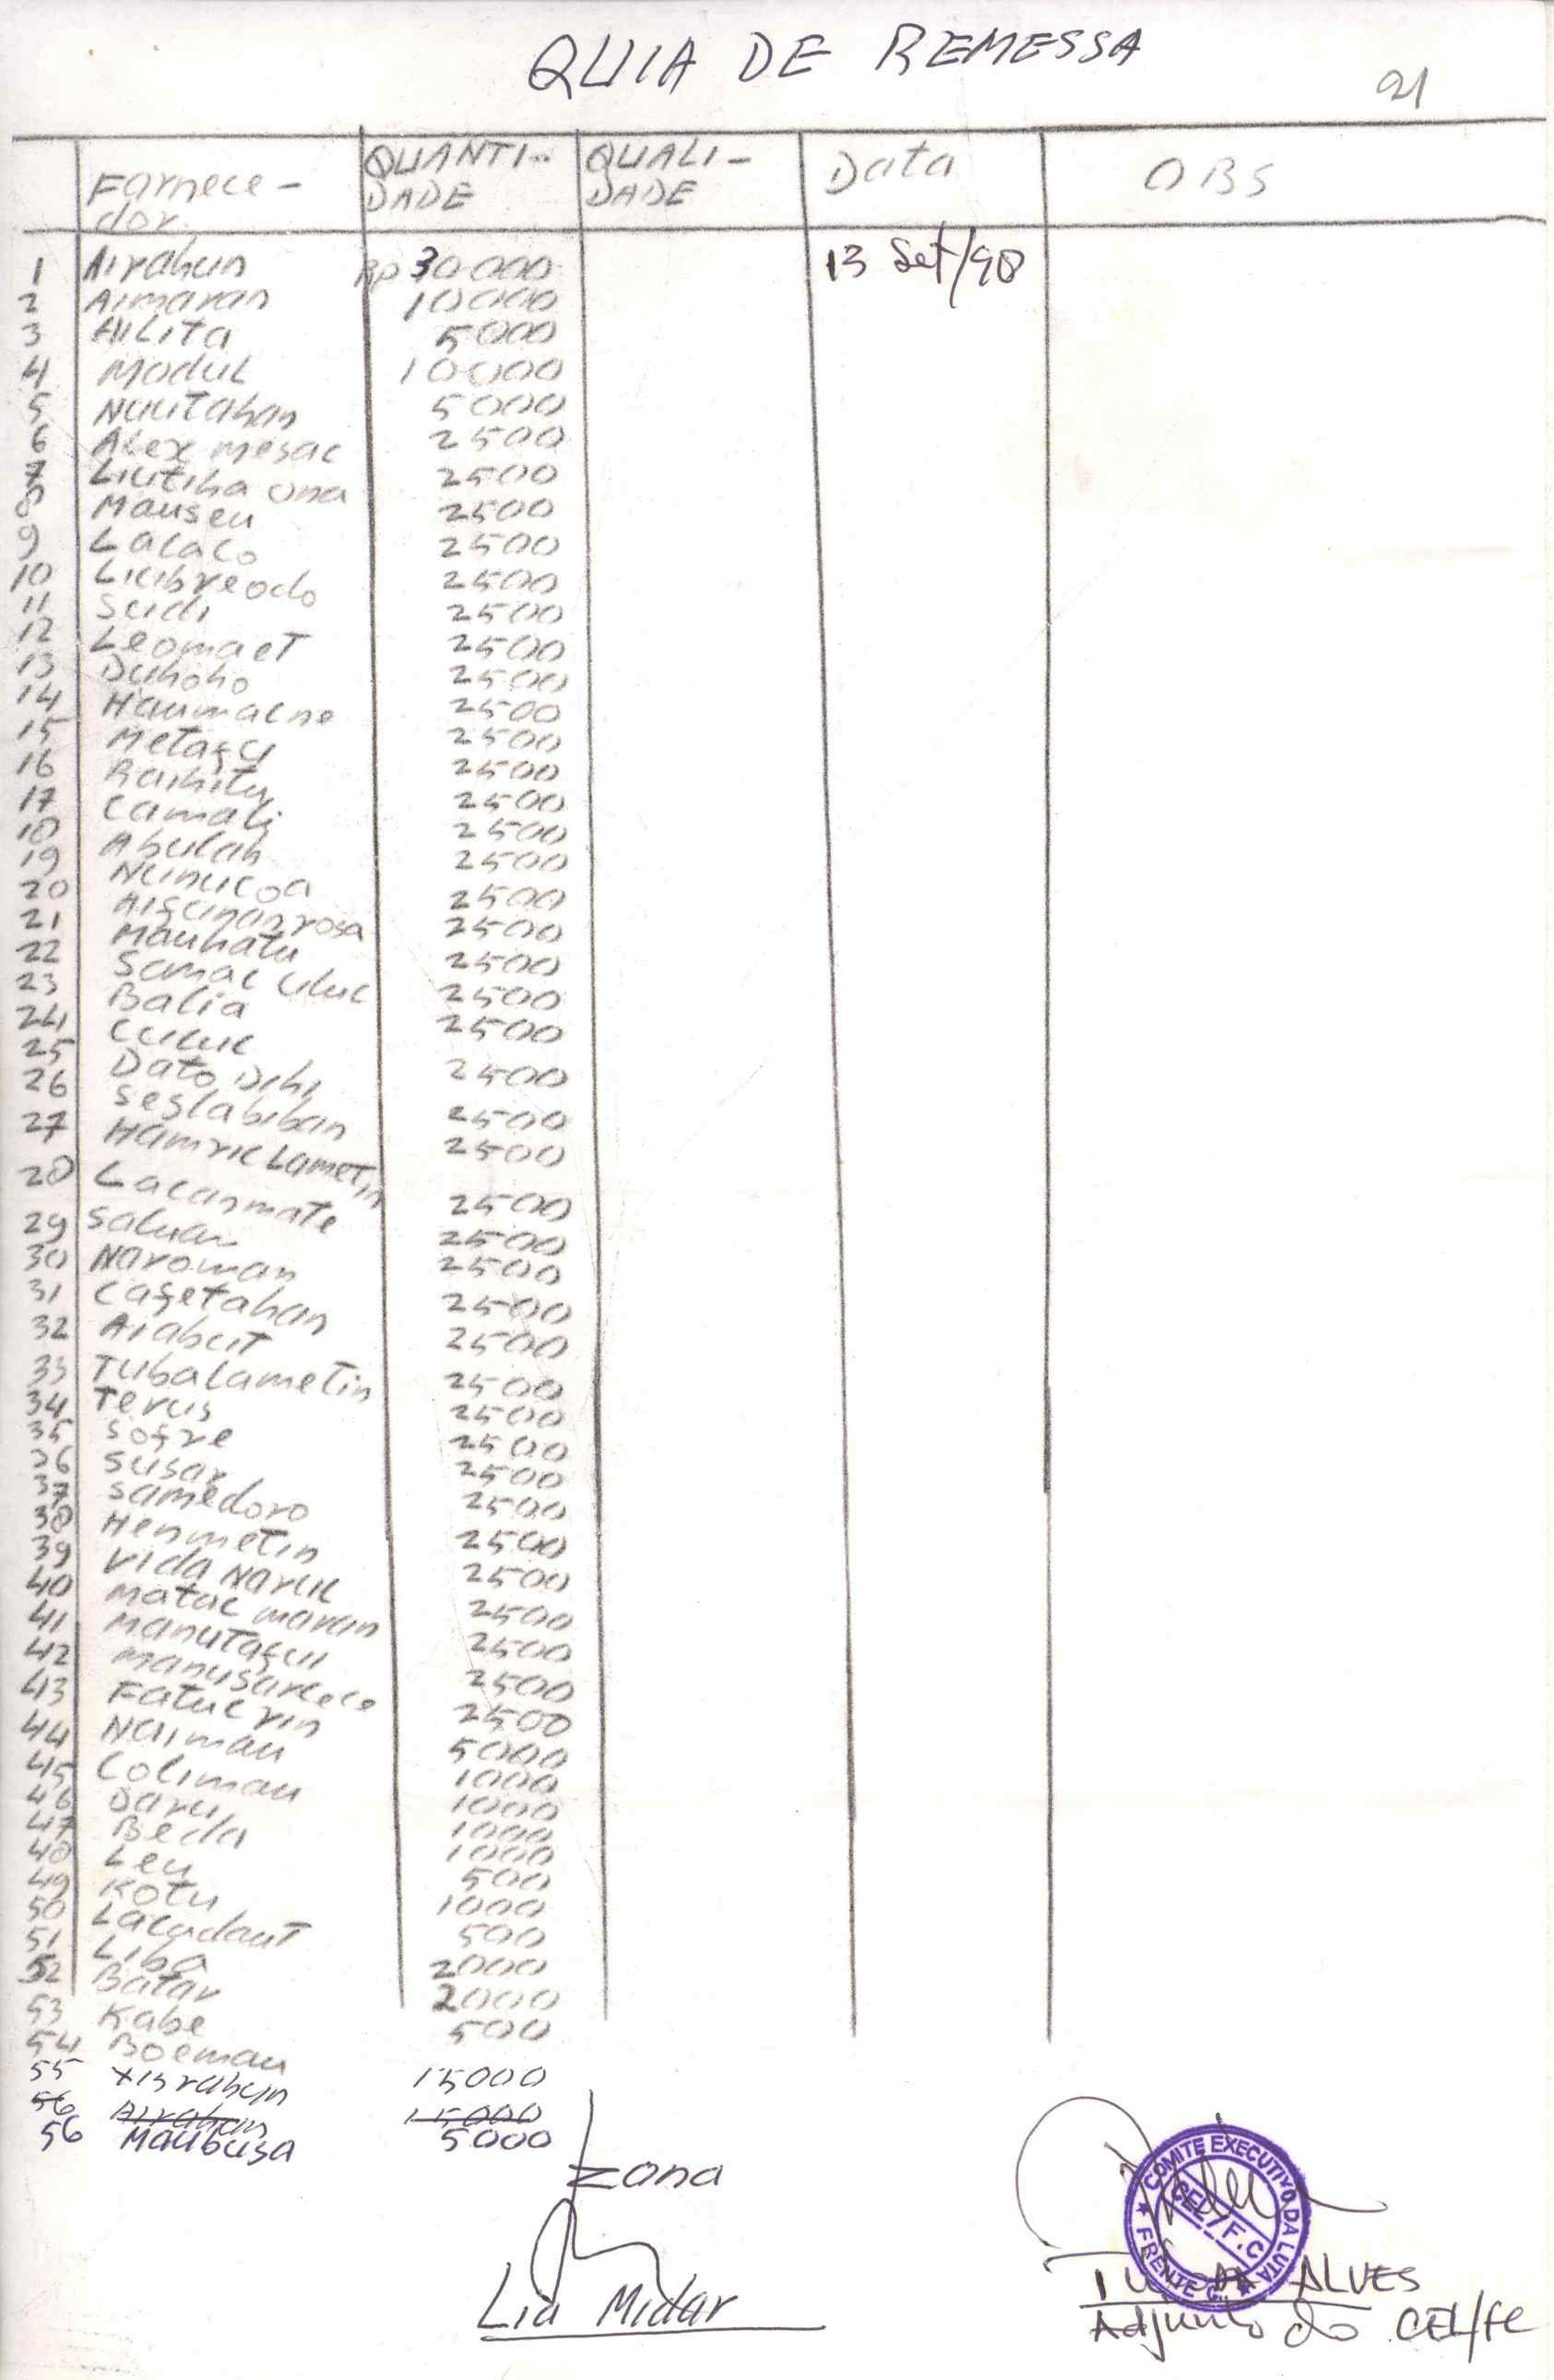 QUIA DE REMESSA
21
Farnece-dor. QUANTI-DADE QUALI-DADE Data OBS
1 Airahun Rp 30000 13 Set/98
2 Aimaran 10000
3 AiLiTa 5000
4 ModuL 10000
5 NuuTahan 5000
6 ALex mesac 2500
7 Liutiha ona 2500
8 Mauseu 2500
9 LaCaCo 2500
10 Liubreodo 2500
11 Sudi 2500
12 Leomaet 2500
13 Duhoho 2500
14 2500
15 2500
16 Raihitu 2500
17 Camali 2500
18 Abulah 2500
19 Nunucoa 2500
20 2500
21 Mauhatu 2500
22 Samac uluc 2500
23 Balia 2500
24 Culuc 2500
25 Dato 2500
26 Seslabiban 2500
27 Hamric Lametin 2500
28 Lacanmate 2500
29 Saluan 2500
30 Naroman 2500
31 Cafetahan 2500
32 Aiabut 2500
33 TubaLameTin 2500
34 Terus 2500
35 Sofre 2500
36 Susar 2500
37 Samedoro 2500
38 HenmeTin 2500
39 Vida Naruc 2500
40 Matac maran 2500
41 Manutafui 2500
42 2500
43 Fatuc rin 2500
44 Naimau 5000
45 Colimau 1000
46 Daru 1000
47 Beda 1000
48 Leu 1000
49 Kotu 500
50 Lacudaut 1000
51 Liba 500
52 Batar 2000
53 Kabe 2000
54 Boemau 500
55 15000
56 Airahun 15000
56 Maubusa 5000
Zona
Lia Midar
COMITE EXECUTIVO DA LUTA
CEL/F.C
FRENTE C.
ALVES
Adjunto do CEL/FC